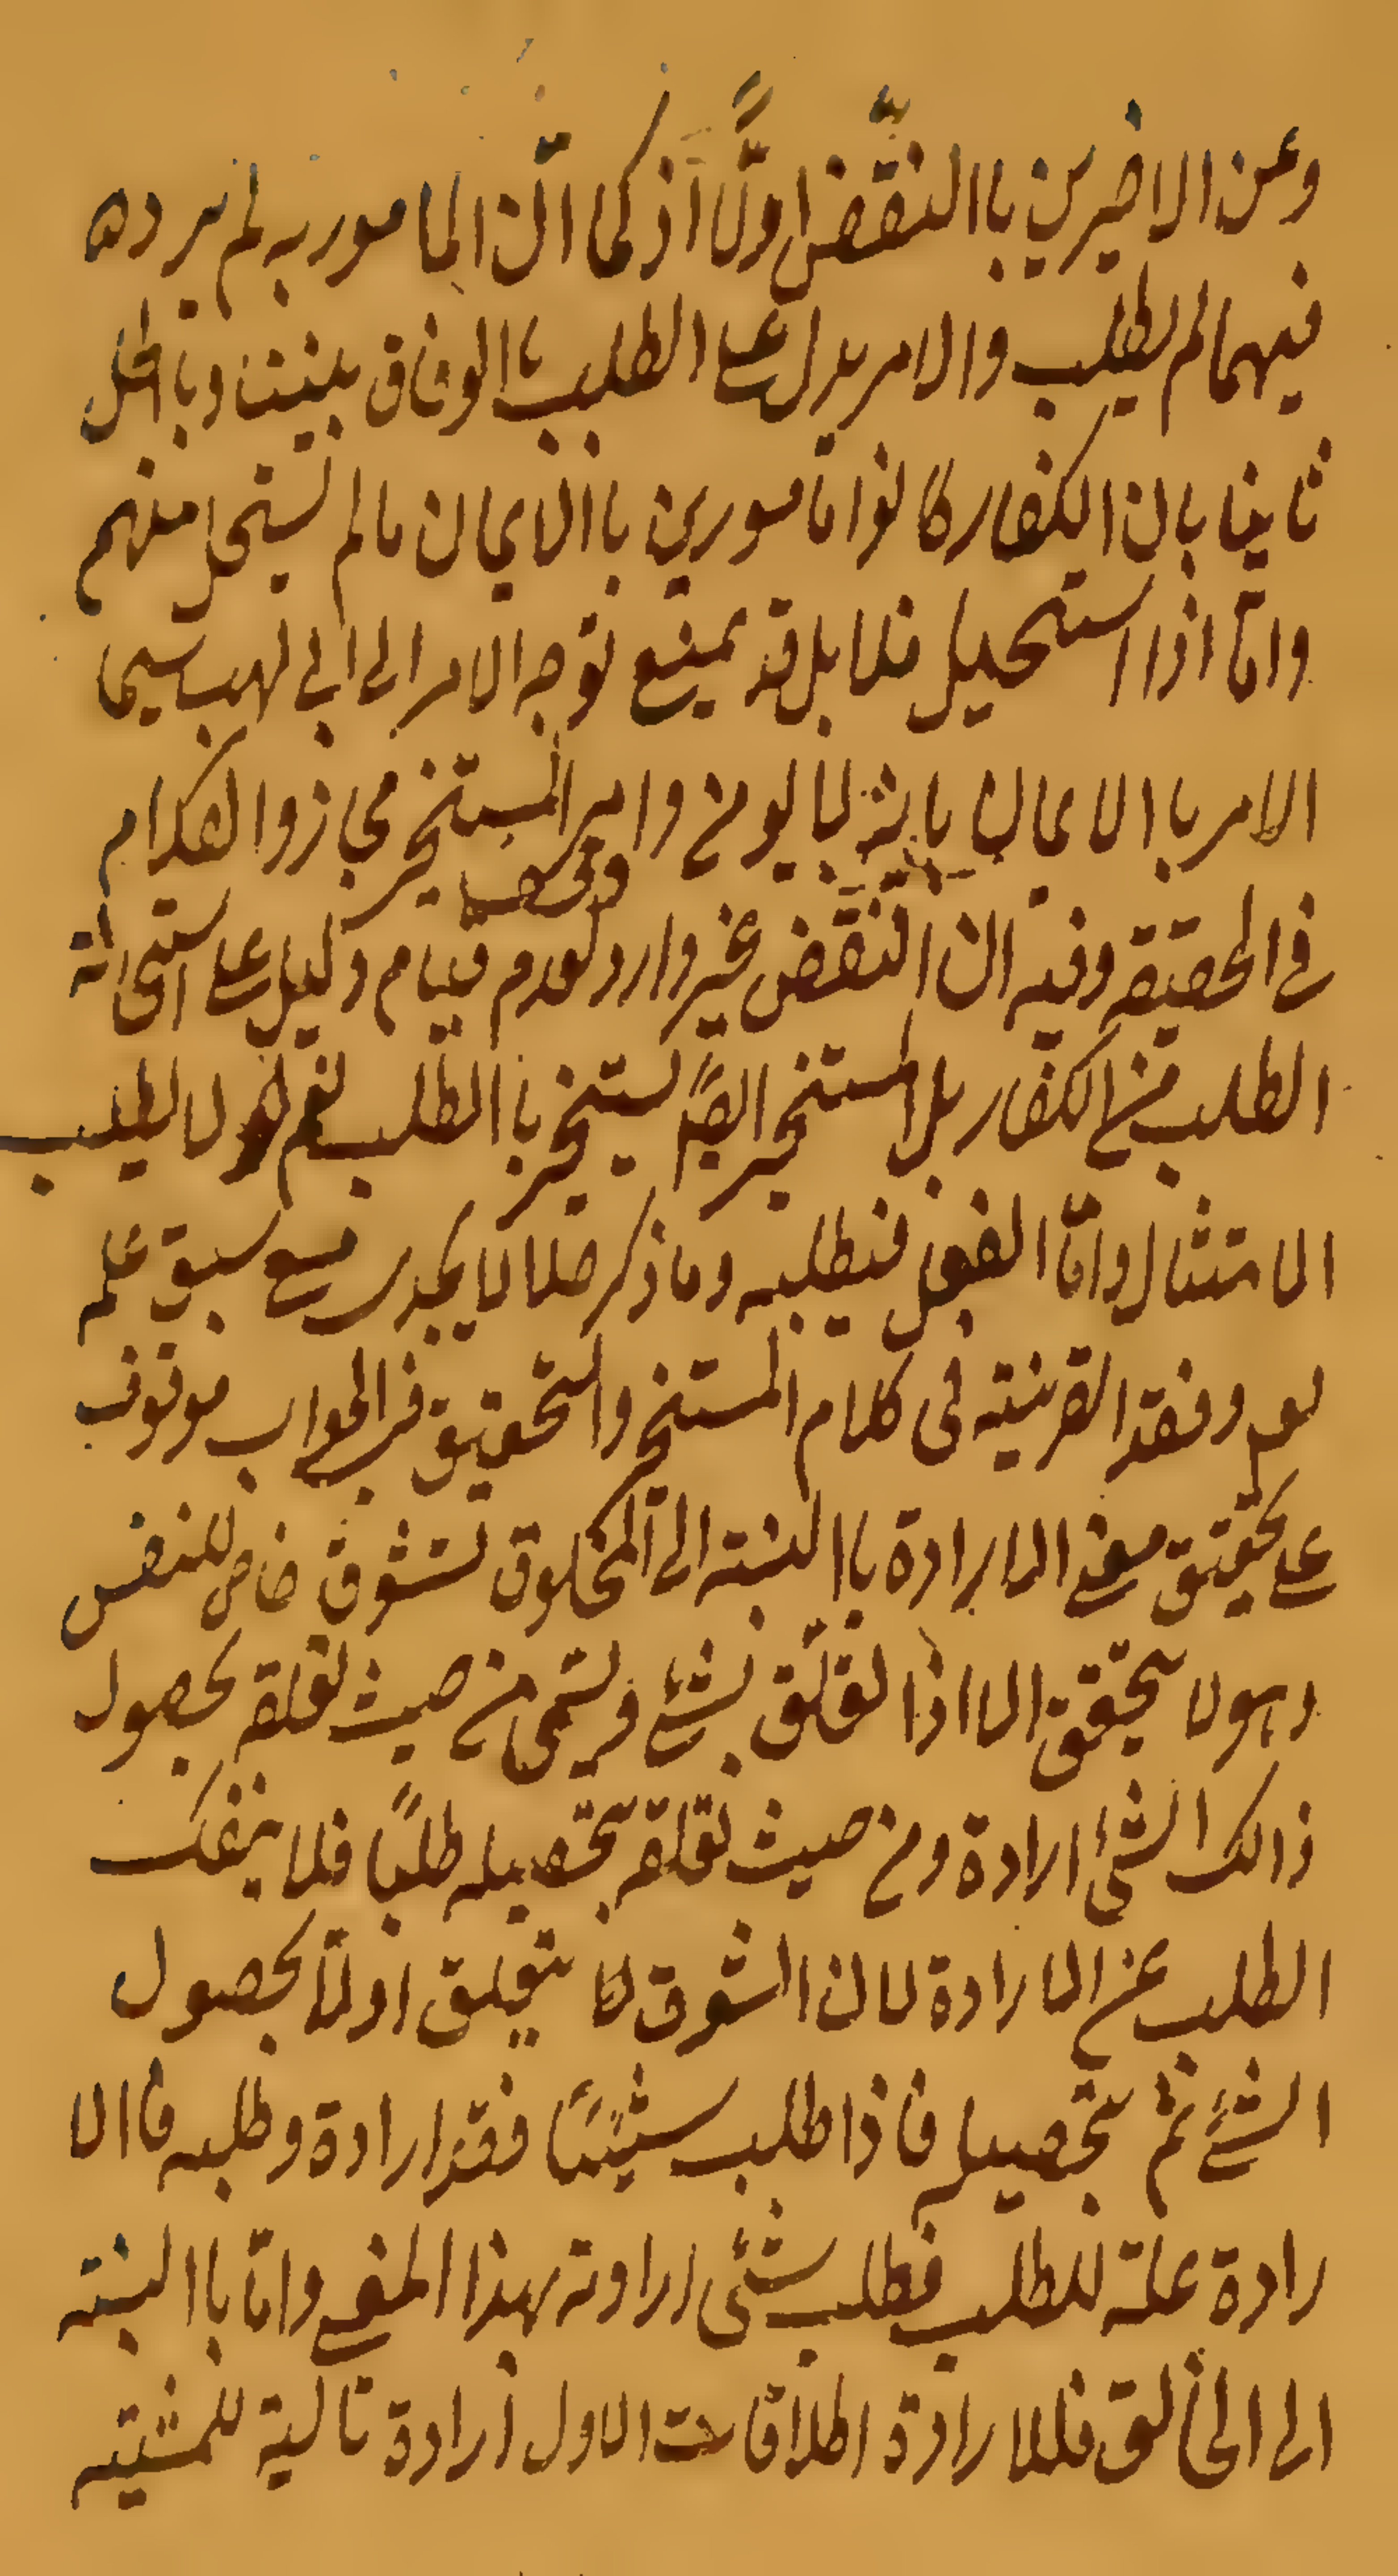 وعن الاخيرين باالنقض اولًا اذ كما انّ الما مور به لم يرده
فيهما لم يطلب والامر يدل على الطلب باالوفاق بيننا وبالحل
ثانيا بان الكفار كانوا مامورين باالايمان مالم يستحل منهم
وامّا اذا استحيل فلا بل قد يمنع توجه الامر الى ابى لهب سيما
الامر باالايمان بانه لايومن وامر المستخبر مجاز والكلام
فى الحقيقة وفيه ان النقض غير وارد لعدم قيام دليل على استحالة
الطلب من الكفار بل المستخبر ايضًا يستخبر باالطلب نعم لا يطلب
الامتثال وامّا الفعل فيطلبه وما ذكر حلا لا يجدى مع سبق علمه
وفقد القرينة فى كلام المستخبر والتحقيق فى الجواب موقوف
على تحقيق معنى الارادة باالنسبة الى المخلوق تشوق خاص للنفس
وهو لا يتحقق الا اذا تعلّق بشئ ويسمّى من حيث تعلقه بحصول
ذالك الشئ ارادة ومن حيث تعلقه بتحصيله طلبًا فلا ينفك
الطلب عن الارادة لان الشوق لا يتعلق اولًا بحصول
الشئ ثم بتحصيله فاذا طلب شيئًا فقد ارادة وطلبه فاالا
رادة علة للطلب فطلب شئى ارادته بهذا المعنى وامّا باالنسبة
الى الخالق فللارادة اطلاقات الاول ارادة تالية للمشيئة